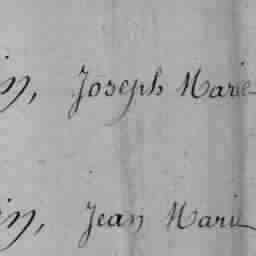 in, Joseph Marie
in, Jean Marie